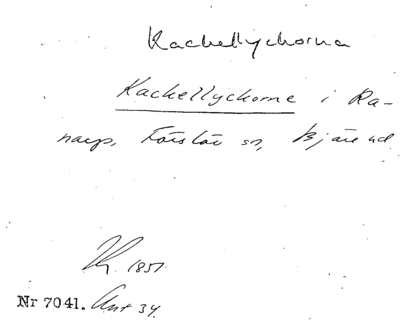 Kachellyckorna
Kachellyckorne i Ra-
narp, Förslöv sn, Bjäre hd
1851
Nr 7041. Ant 34.